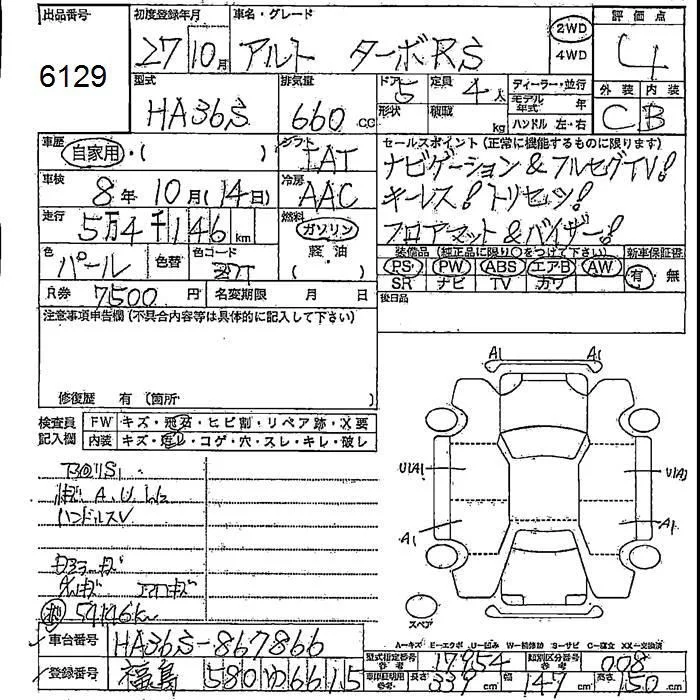 出品番号 初度登録年月 車名・グレード 評価点
6129
27 10月 アルト ターボRS 2WD 4WD 4
型式 排気量 ドア 定員 ディーラー・並行 外装 内装
HA36S 660 CC 5 4人 モデル年式 年 C B
形状 積載 kg ハンドル 左・右
車歴 自家用・( ) シフト FAT セールスポイント(正常に機能するものに限ります)
ナビゲーション & フルセグTV!
車検 8年 10月(14日) 冷房 AAC キーレス! トリセツ!
走行 5万4千146km 燃料 ガソリン 軽・油 フロアマット & バイザー!
装備品(純正品に限り○をつけて下さい) 新車保証書
色 パール 色替 色コード PS PW ABS エアB AW 有・無
SR ナビ TV カワ
R券 7500円 名変期限 月 日 後日品
注意事項申告欄(不具合内容等は具体的に記入して下さい)
修復歴 有(箇所 )
検査員記入欄 FW キズ・飛石・ヒビ割・リペア跡・X要
内装 キズ・汚レ・コゲ・穴・スレ・キレ・破レ
A1 A1
U1A1 U1A1
A1 A1
ハンドルスレ
54146km
スペア
A-キズ E-エクボ U-凹み W-補修跡 S-サビ C-腐食 XX-交換済
車台番号 HA36S-867866
型式指定番号 参考 17954 類別区分番号 参考 008
登録番号 福島 580 ゆ 6615
車検証明用 参考 長さ 339cm 幅 147cm 高さ 150cm